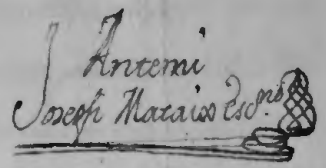 Antemi
Joseph Mataix Esc.no